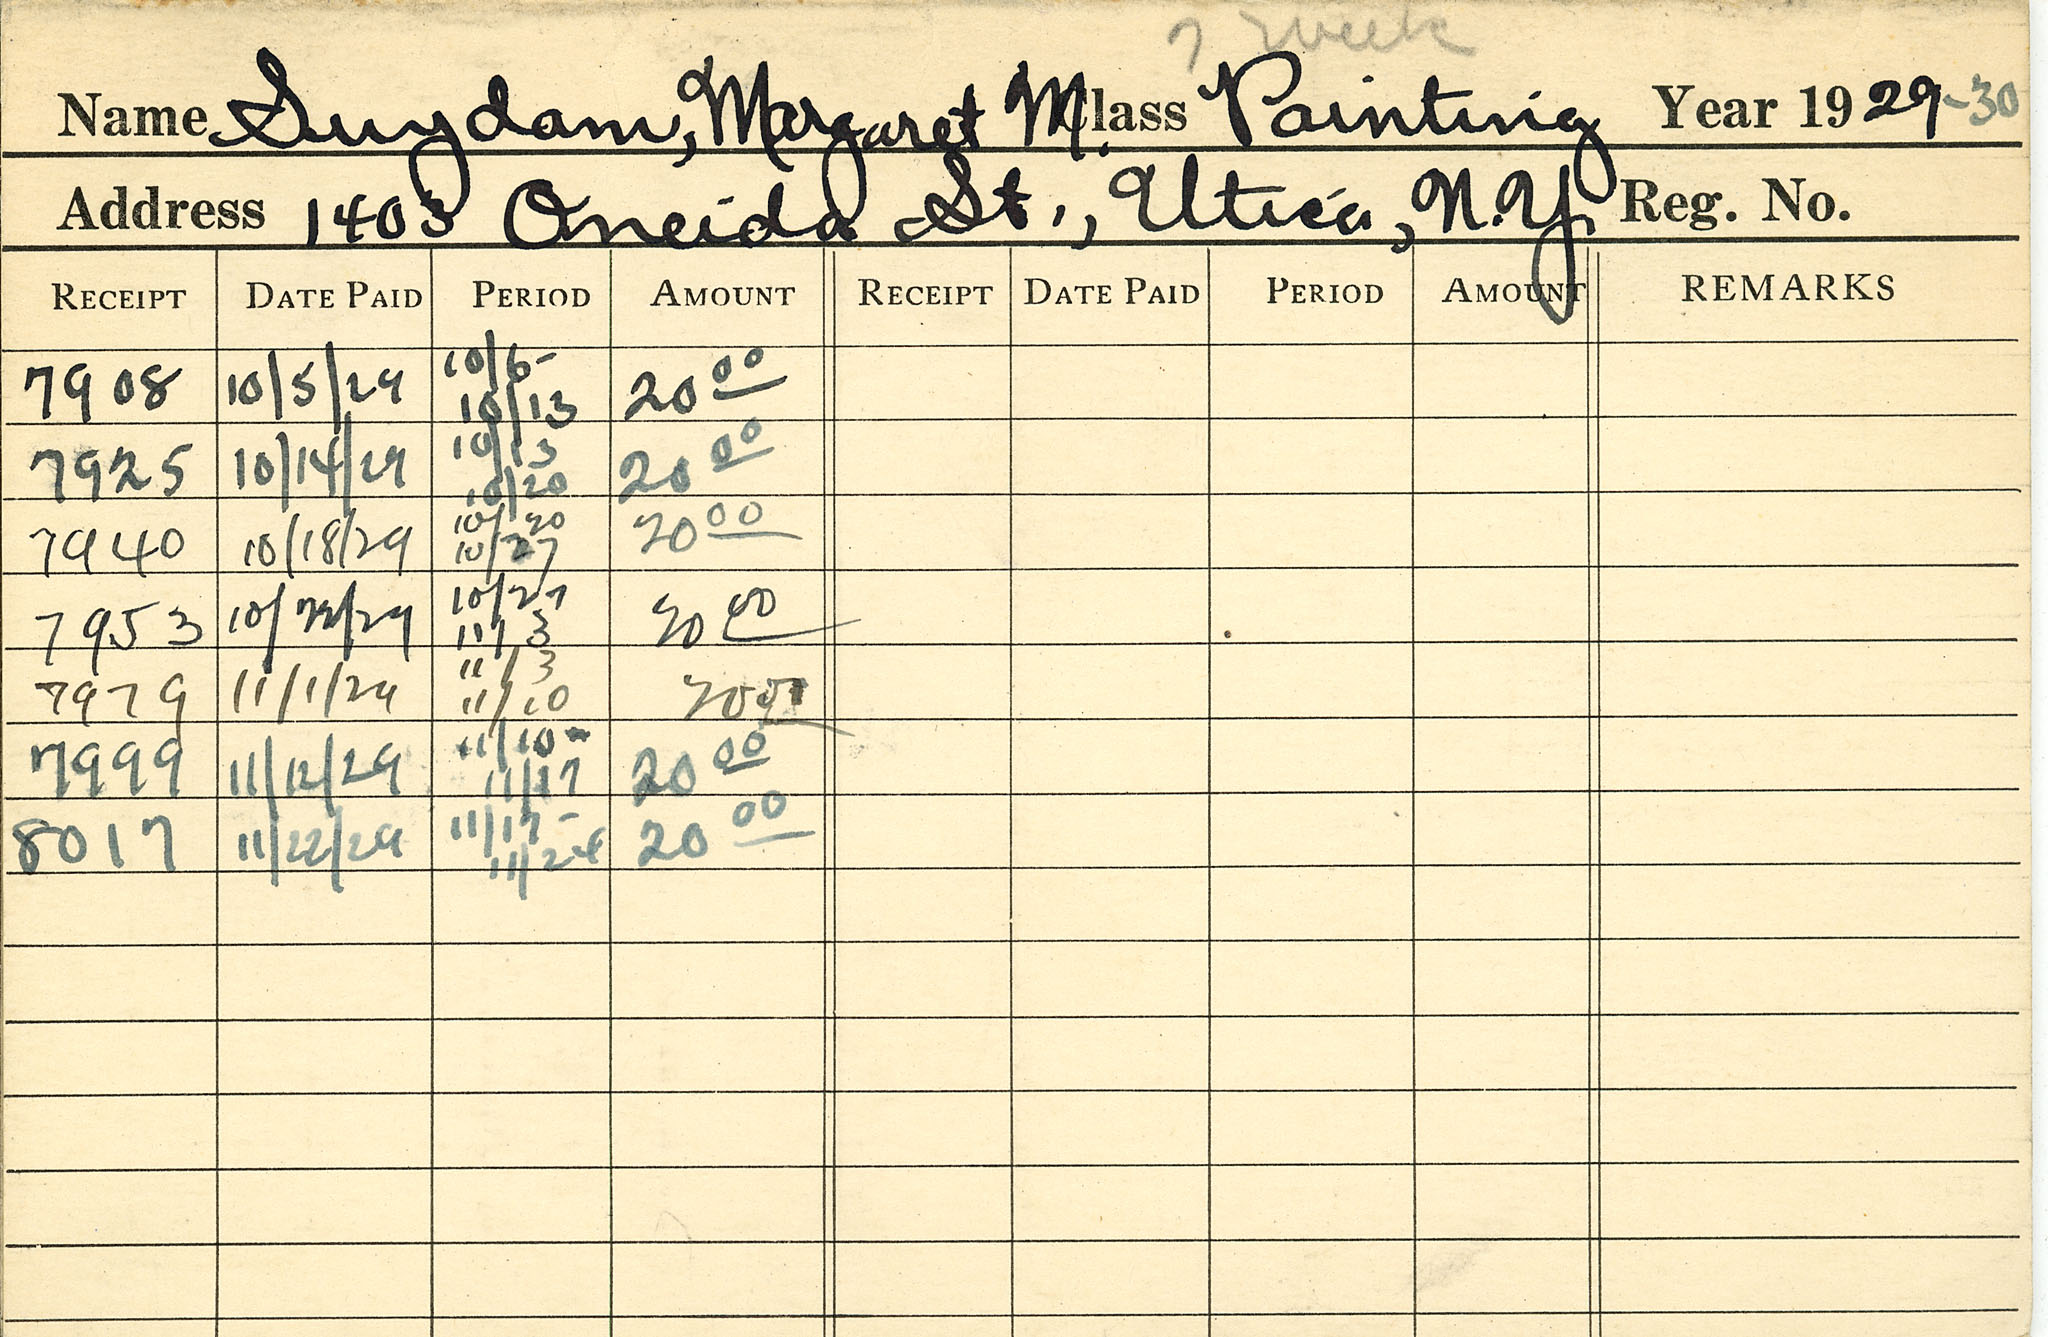 7 Week
Name Suydam, Margaret M. Class Painting Year 1929-30
Address 1403 Oneida St., Utica, N.Y. Reg. No.
RECEIPT DATE PAID PERIOD AMOUNT RECEIPT DATE PAID PERIOD AMOUNT REMARKS
7908 10/5/29 10/6- 10/13 20 00
7925 10/14/29 10/13 10/20 20 00
7940 10/18/29 10/20 10/27 20 00
7953 10/29 10/27 11/3 20 00
7979 11/1/29 11/3 11/10 20 00
7999 11/12/29 11/10- 11/17 20 00
8017 11/22/29 11/17- 11/24 20 00